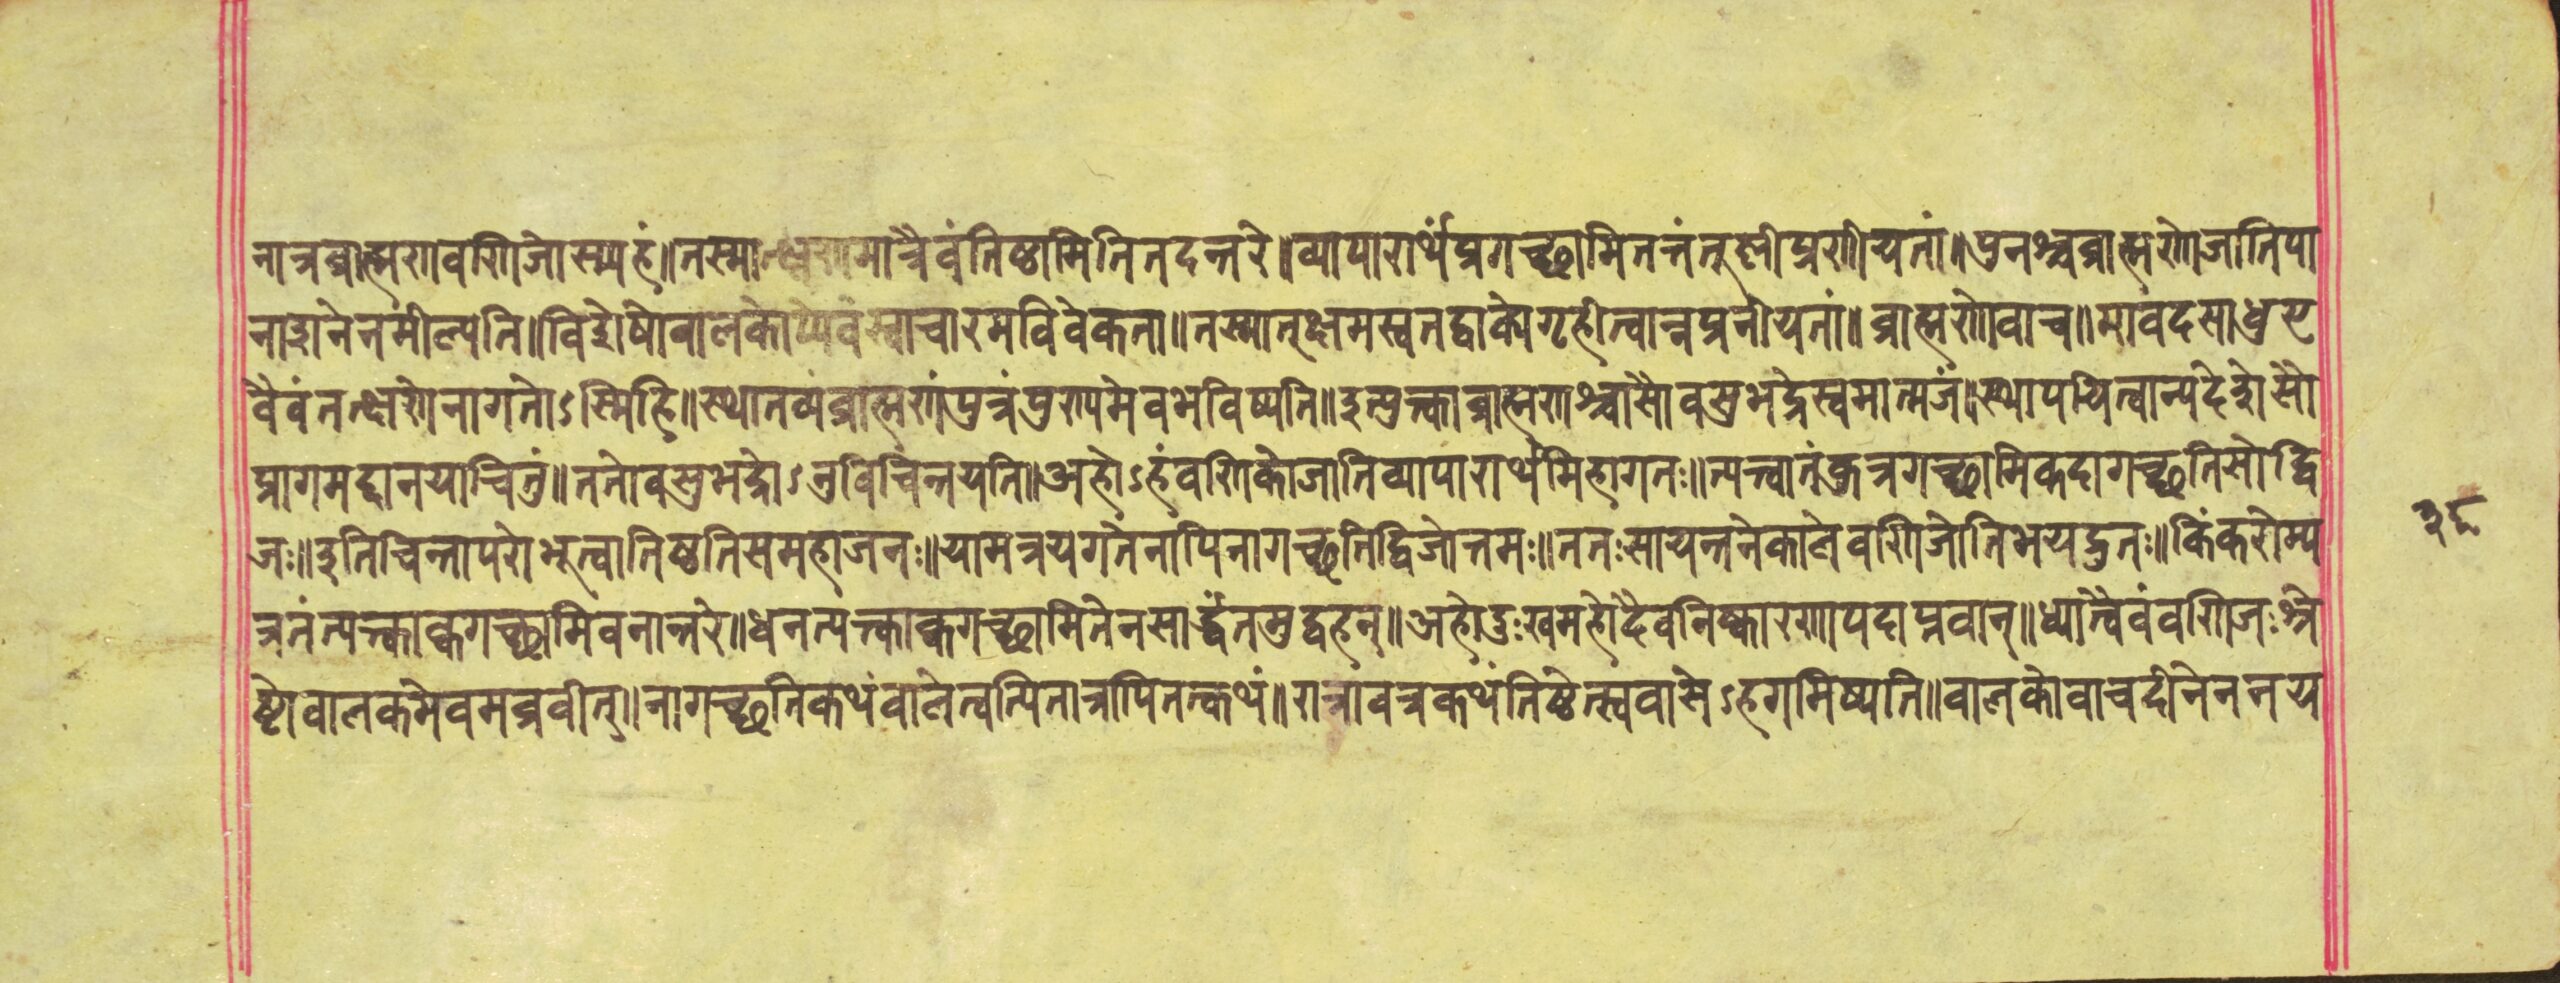 नात्रब्राह्मणवणिजोस्म्यहं॥तस्मात्क्षणमात्रैवंतिष्ठामितितदन्तरे॥व्यापारार्थंप्रगच्छामितन्तंतूष्णीप्रणीयतां॥पुनश्चब्राह्मणोजातिपा
नाशनेनमील्पति॥विशेषोबालकोप्येवंस्वाचारमविवेकता॥तस्मात्क्षमस्वतद्वाक्येगृहीत्वान्नप्रनीयतां॥ब्राह्मणोवाच॥मावंदसाधुस्ट
वैवंतत्क्षणेनागतोऽस्मिहि॥स्थातव्यंब्राह्मणंपुत्रंपुण्यमेवभविष्यति॥इत्युत्क्काब्राह्मणश्चासौवसुभद्रेस्वमात्मजं॥स्थापयित्वान्यदेशेसौ
प्रागमद्दानयाचितुं॥ततोवसुभद्रोऽनुविचिंन्तयति॥अहोऽहंवणिकोजातिव्यापारार्थमिहागतः॥त्यत्त्वातंकुत्रगच्छामिकदागच्छतिसोद्वि
जः॥इतिचिन्तापरोभूत्वातिष्ठतिसमहाजनः॥यामत्रयगतेनापिनागच्छतिद्विजोत्तमः॥ततःसायन्तनेकालेवणिजोतिभयद्रुतः॥किंकरोम्य
त्रतंत्यत्क्काक्वगच्छामिवनान्तरे॥धनत्यत्क्काक्वगच्छामितेनसार्द्धंतमुद्वहन्॥अहोदुःखमहोदैवनिष्कारणापदाप्नवान्॥ध्यात्वैवंवणिजःश्रे
ष्टोवालकमेवमब्रवीत्॥नागच्छतिकथंवालेत्वत्पितात्रापितत्कथं॥रात्रावत्रकथंतिष्ठेत्स्ववासेऽहगमिष्यति॥वालकोवाचदीनेननय
३८